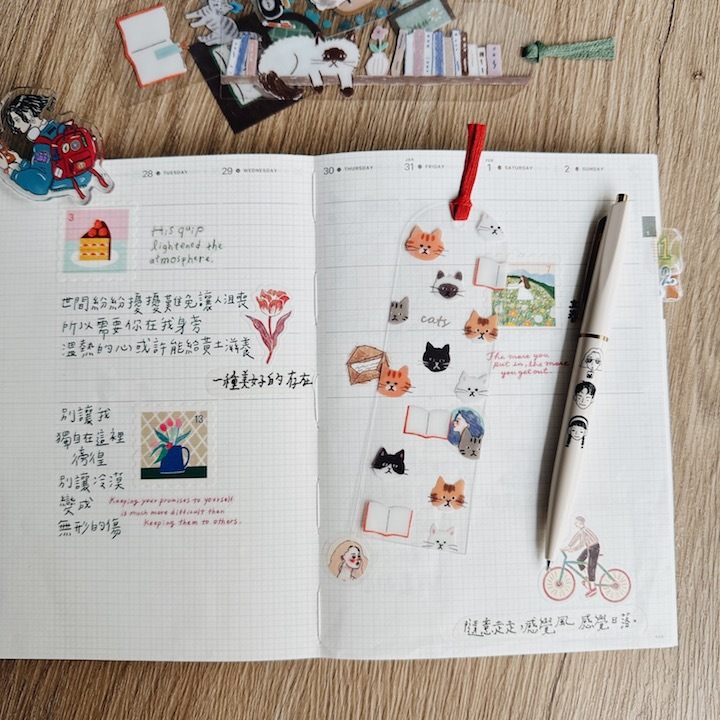 28 ● TUESDAY
29 ● WEDNESDAY
30 ● THURSDAY
JAN
31 ● FRIDAY
FEB
1 ● SATURDAY
2 ● SUNDAY
3
His quip
lightened the
atmosphere.
世間紛紛擾擾難免讓人沮喪
所以需要你在我身旁
溫熱的心或許能給黃土滋養
一種美好的存在
別讓我
獨自在這裡
徬徨
別讓冷漠
變成
無形的傷
13
Keeping your promises to yourself
is much more difficult than
keeping them to others.
cats
The more you
put in, the more
you get out.
隨意走走,感覺風 感覺日落.